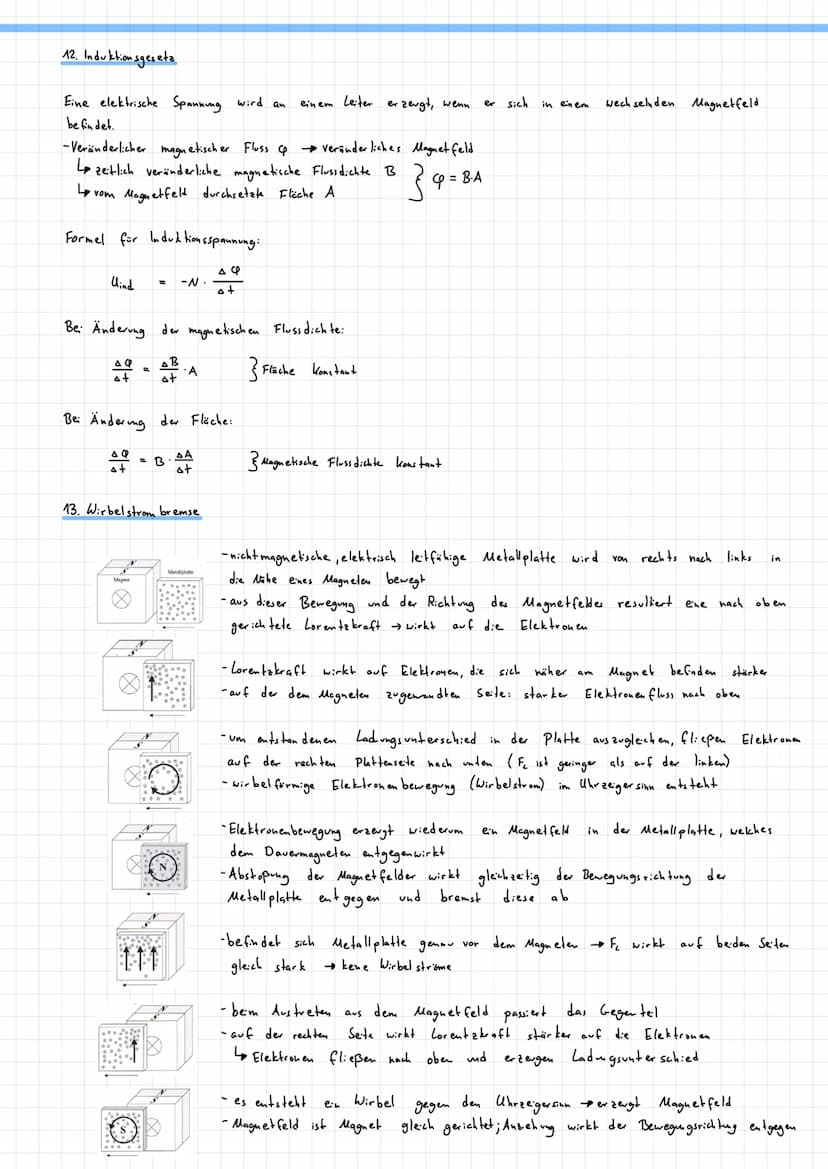 12. Induktionsgesetz
Eine elektrische Spannung wird an einem Leiter erzeugt, wenn er sich in einem wechselnden Magnetfeld
befindet.
-Veränderlicher magnetischer Fluss φ → veränderliches Magnetfeld
↳ zeitlich veränderliche magnetische Flussdichte B
↳ vom Magnetfeld durchsetzte Fläche A
} φ = B·A
Formel für Induktionsspannung:
Uind = -N · Δφ/Δt
Bei Änderung der magnetischen Flussdichte:
Δφ/Δt = ΔB/Δt · A } Fläche konstant
Bei Änderung der Fläche:
Δφ/Δt = B · ΔA/Δt } Magnetische Flussdichte konstant
13. Wirbelstrombremse
Magnet
Metallplatte
-nichtmagnetische, elektrisch leitfähige Metallplatte wird von rechts nach links in
die Nähe eines Magneten bewegt
-aus dieser Bewegung und der Richtung des Magnetfeldes resultiert eine nach oben
gerichtete Lorentzkraft → wirkt auf die Elektronen
-Lorentzkraft wirkt auf Elektronen, die sich näher am Magnet befinden stärker
-auf der dem Magneten zugewandten Seite: starker Elektronenfluss nach oben
-um entstandenen Ladungsunterschied in der Platte auszugleichen, fließen Elektronen
auf der rechten Plattenseite nach unten (FL ist geringer als auf der linken)
-wirbelförmige Elektronenbewegung (Wirbelstrom) im Uhrzeigersinn entsteht
-Elektronenbewegung erzeugt wiederum ein Magnetfeld in der Metallplatte, welches
dem Dauermagneten entgegenwirkt
-Abstoßung der Magnetfelder wirkt gleichzeitig der Bewegungsrichtung der
Metallplatte entgegen und bremst diese ab
N
-befindet sich Metallplatte genau vor dem Magneten → FL wirkt auf beiden Seiten
gleich stark → keine Wirbelströme
-beim Austreten aus dem Magnetfeld passiert das Gegenteil
-auf der rechten Seite wirkt Lorentzkraft stärker auf die Elektronen
↳ Elektronen fließen nach oben und erzeugen Ladungsunterschied
-es entsteht ein Wirbel gegen den Uhrzeigersinn → erzeugt Magnetfeld
-Magnetfeld ist Magnet gleich gerichtet; Anziehung wirkt der Bewegungsrichtung entgegen
S